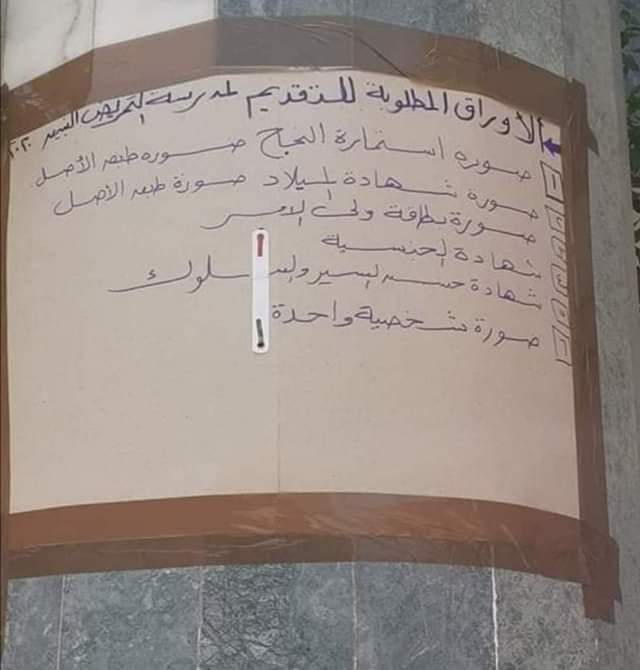 الأوراق المطلوبة للتقديم لمدرسة التمريض ٢٠٢٠
١ صوره استمارة النجاح صوره طبق الأصل
٢ صورة شهادة الميلاد صورة طبق الاصل
٣ صورة بطاقة ولى الامر
٤ شهادة الجنسية
٥ شهادة حسن السير والسلوك
٦ صورة شخصية واحدة